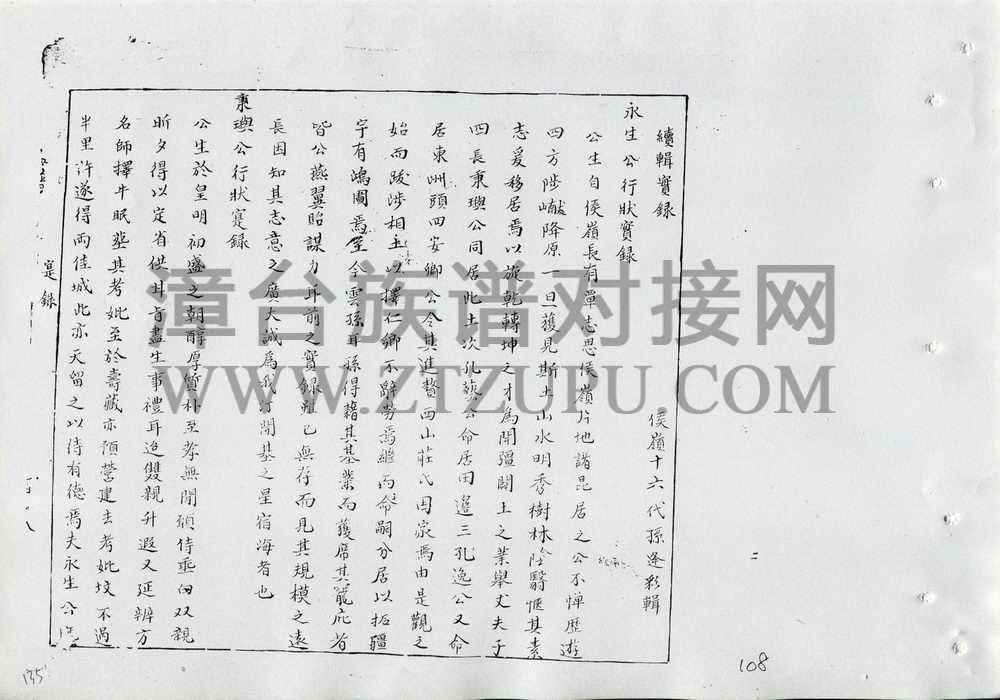 續輯實录
侯嶺十六代孫逢彩輯
永生公行狀實録
公生自侯嶺長有單志思侯嶺片地諸昆居之公不憚歷遊
四方陟巘降原一旦獲見斯土山水明秀樹林陰翳愜其素
志爰移居焉以旋乾轉坤之才為開疆闢土之業舉丈夫子
四長秉璵公同居此土次孔藝公命居田邊三孔逸公又命
居東洲頭四安卿公令其進贅西山莊氏因家焉由是觀之
始而跋涉相土以擇仁鄉不辭勞焉繼而命嗣分居以拓疆
宇有鴻圖焉至今雲孫耳孫得藉其基業而獲席其寵庇者
皆公燕翼貽謀力耳前之實録雖已無存而見其規模之遠
長因知其志意之廣大誠為我汀開基之星宿海者也
秉璵公行狀寔録
公生於皇明初盛之朝醇厚質朴至孝無間頎侍垂白双親
昕夕得以定省供甘旨盡生事禮耳迨雙親升遐又延辨方
名師擇牛眠塟其考妣至於壽藏亦預營建去考妣坟不過
半里許遂得两佳城此亦天留之以待有德焉夫永生公
寔録
108
135
漳台族谱对接网
WWW.ZTZUPU.COM